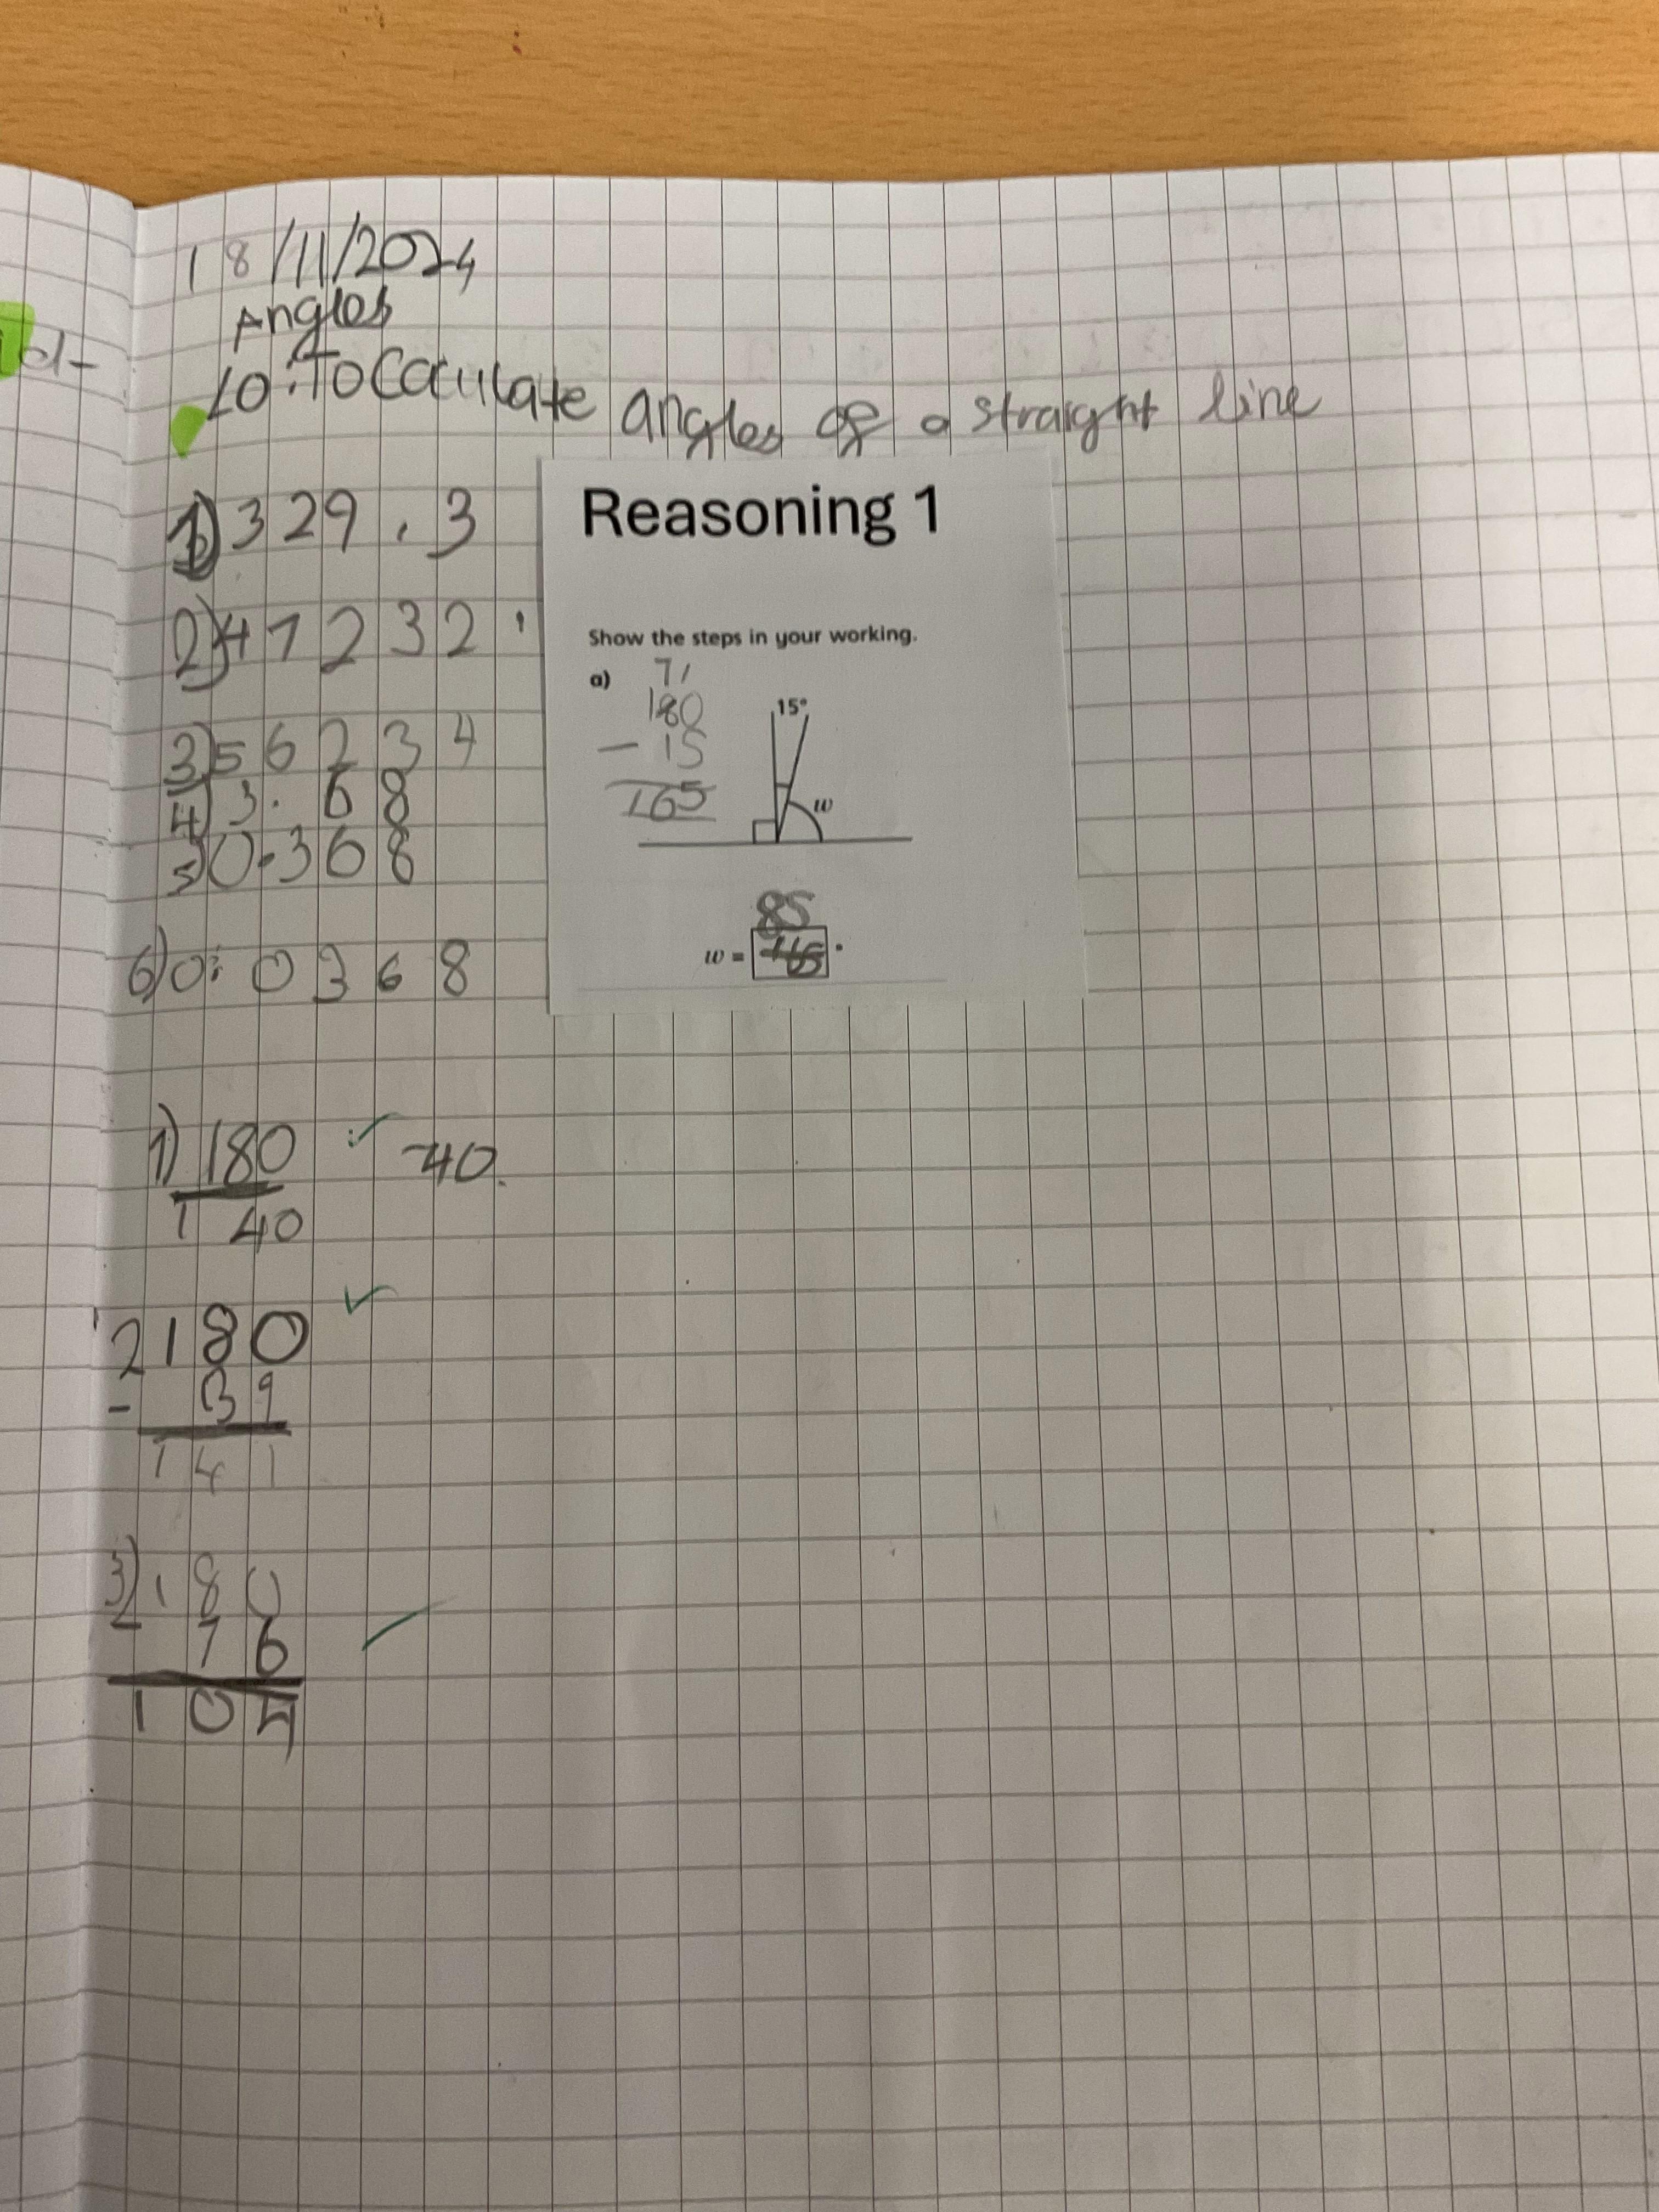 18/11/2024
Angles
LO: To Caculate angles of a straight line
1) 329.3
2) 41232.
3) 56234
4) 3.68
5) 0.368
6) 0.0368
Reasoning 1
Show the steps in your working.
a)
7 1
180
- 15
165
15°
w
85
w = 165 °
1) 180 - 40.
140
2 180
- 39
141
3) 180
76
104